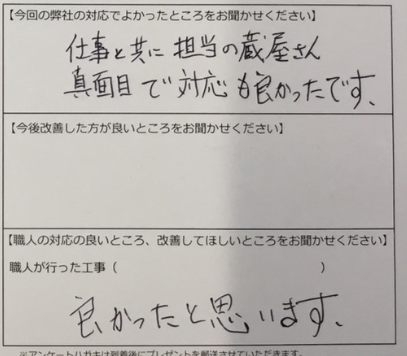 【今回の弊社の対応でよかったところをお聞かせください】
仕事と共に担当の蔵屋さん
真面目で対応も良かったです、
【今後改善した方が良いところをお聞かせください】
【職人の対応の良いところ、改善してほしいところをお聞かせください】
職人が行った工事（　　　　　　　　　　　　）
良かったと思います、
※アンケートハガキは到着後にプレゼントを郵送させていただきます。